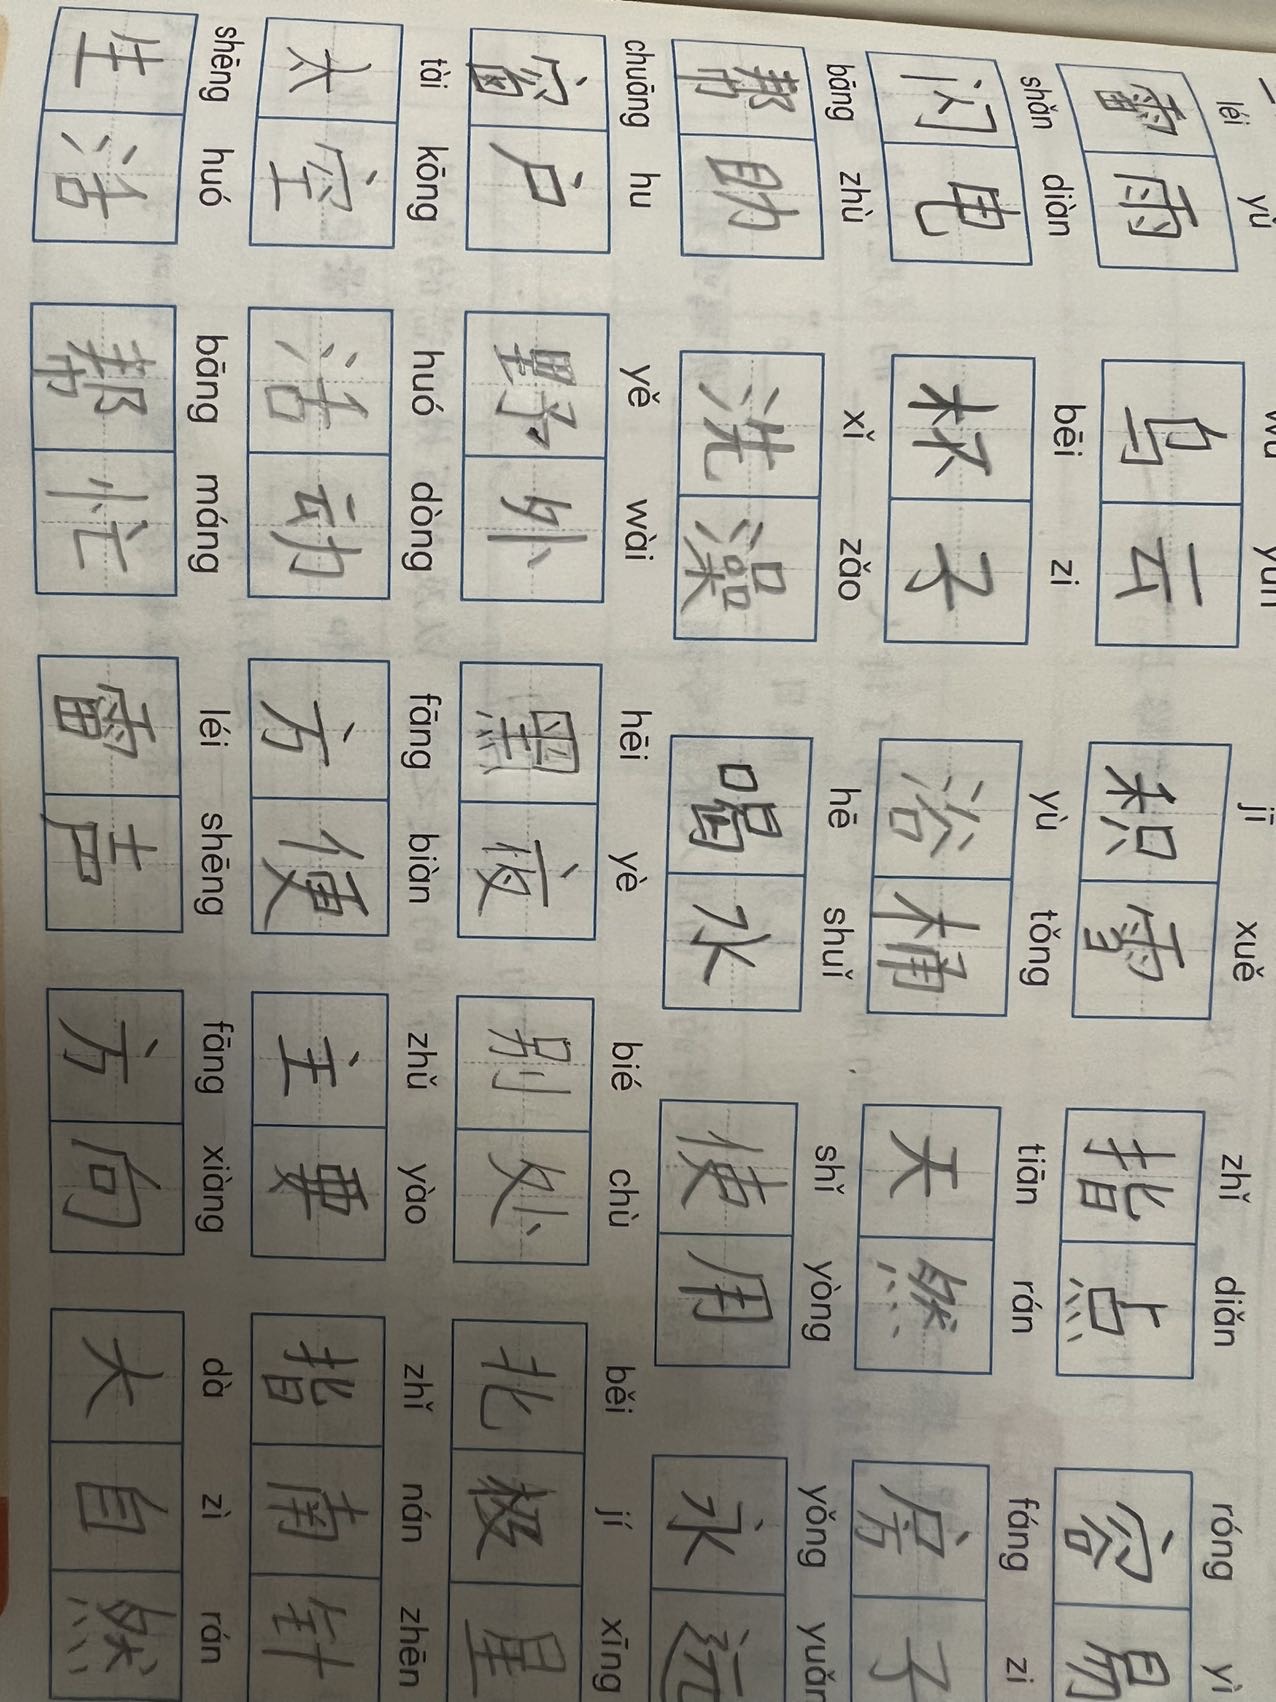 léi yǔ wū yún jī xuě zhǐ diǎn róng yì
雷雨 乌云 积雪 指点 容易
shǎn diàn bēi zi yù tǒng tiān rán fáng zi
闪电 杯子 浴桶 天然 房子
bāng zhù xǐ zǎo hē shuǐ shǐ yòng yǒng yuǎn
帮助 洗澡 喝水 使用 永远
chuāng hu yě wài hēi yè bié chù běi jí xīng
窗户 野外 黑夜 别处 北极星
tài kōng huó dòng fāng biàn zhǔ yào zhǐ nán zhēn
太空 活动 方便 主要 指南针
shēng huó bāng máng léi shēng fāng xiàng dà zì rán
生活 帮忙 雷声 方向 大自然